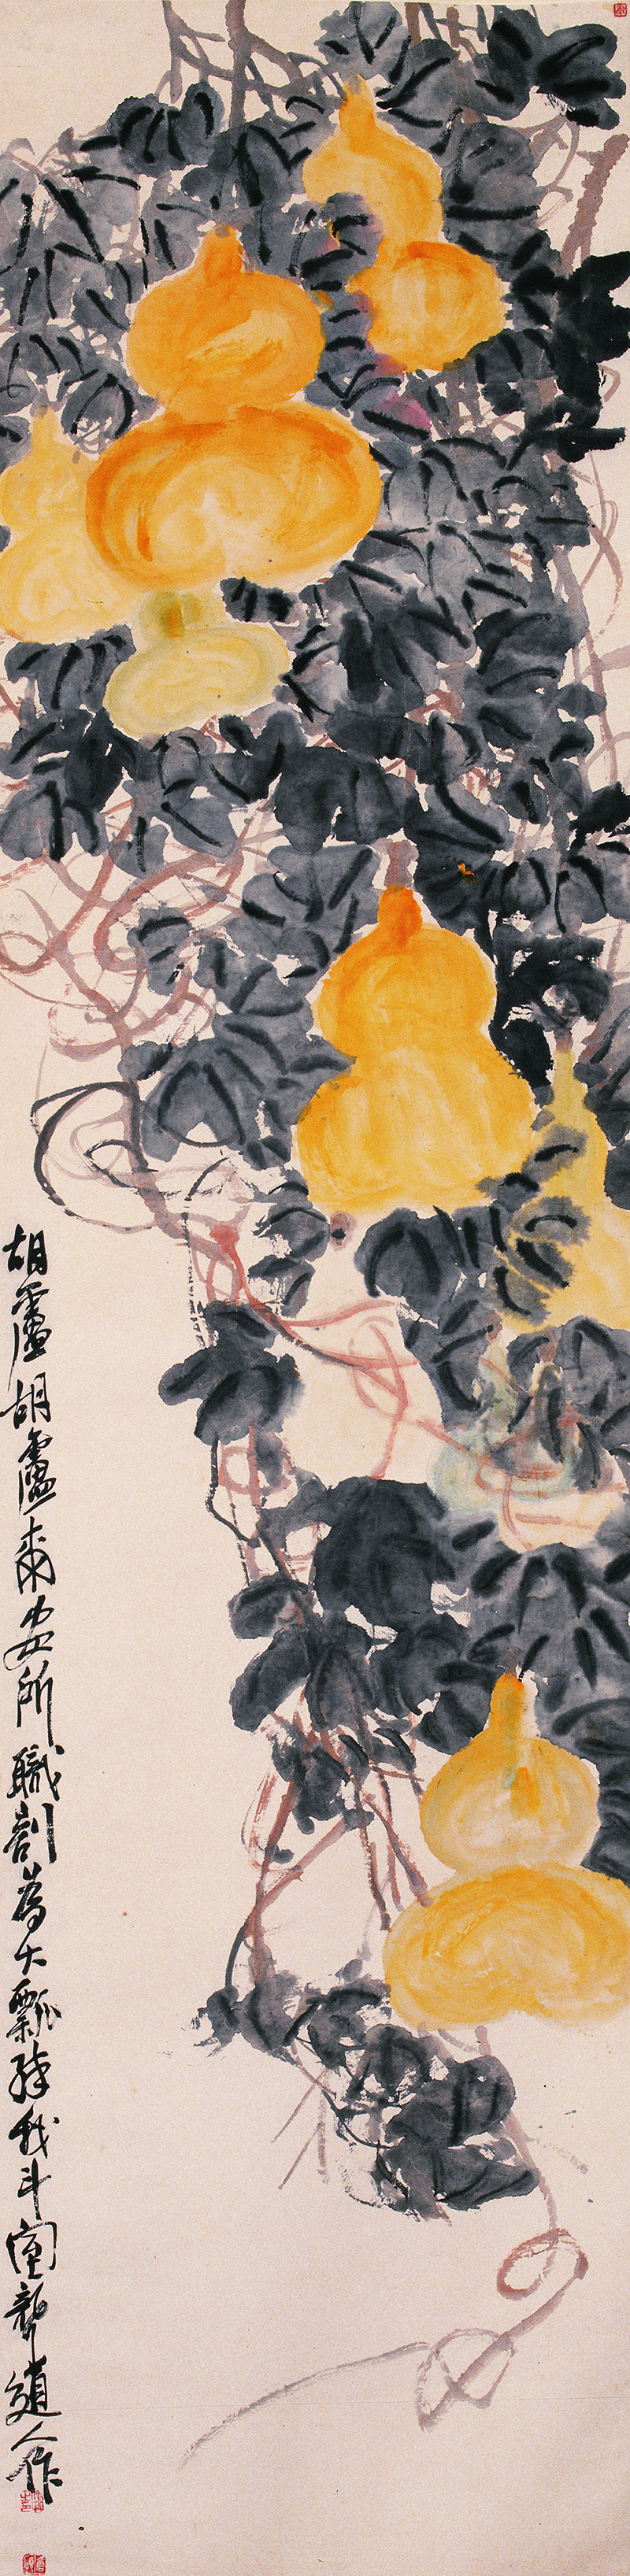 胡盧胡盧爾安所職剖為大瓢醉我斗室聾道人作